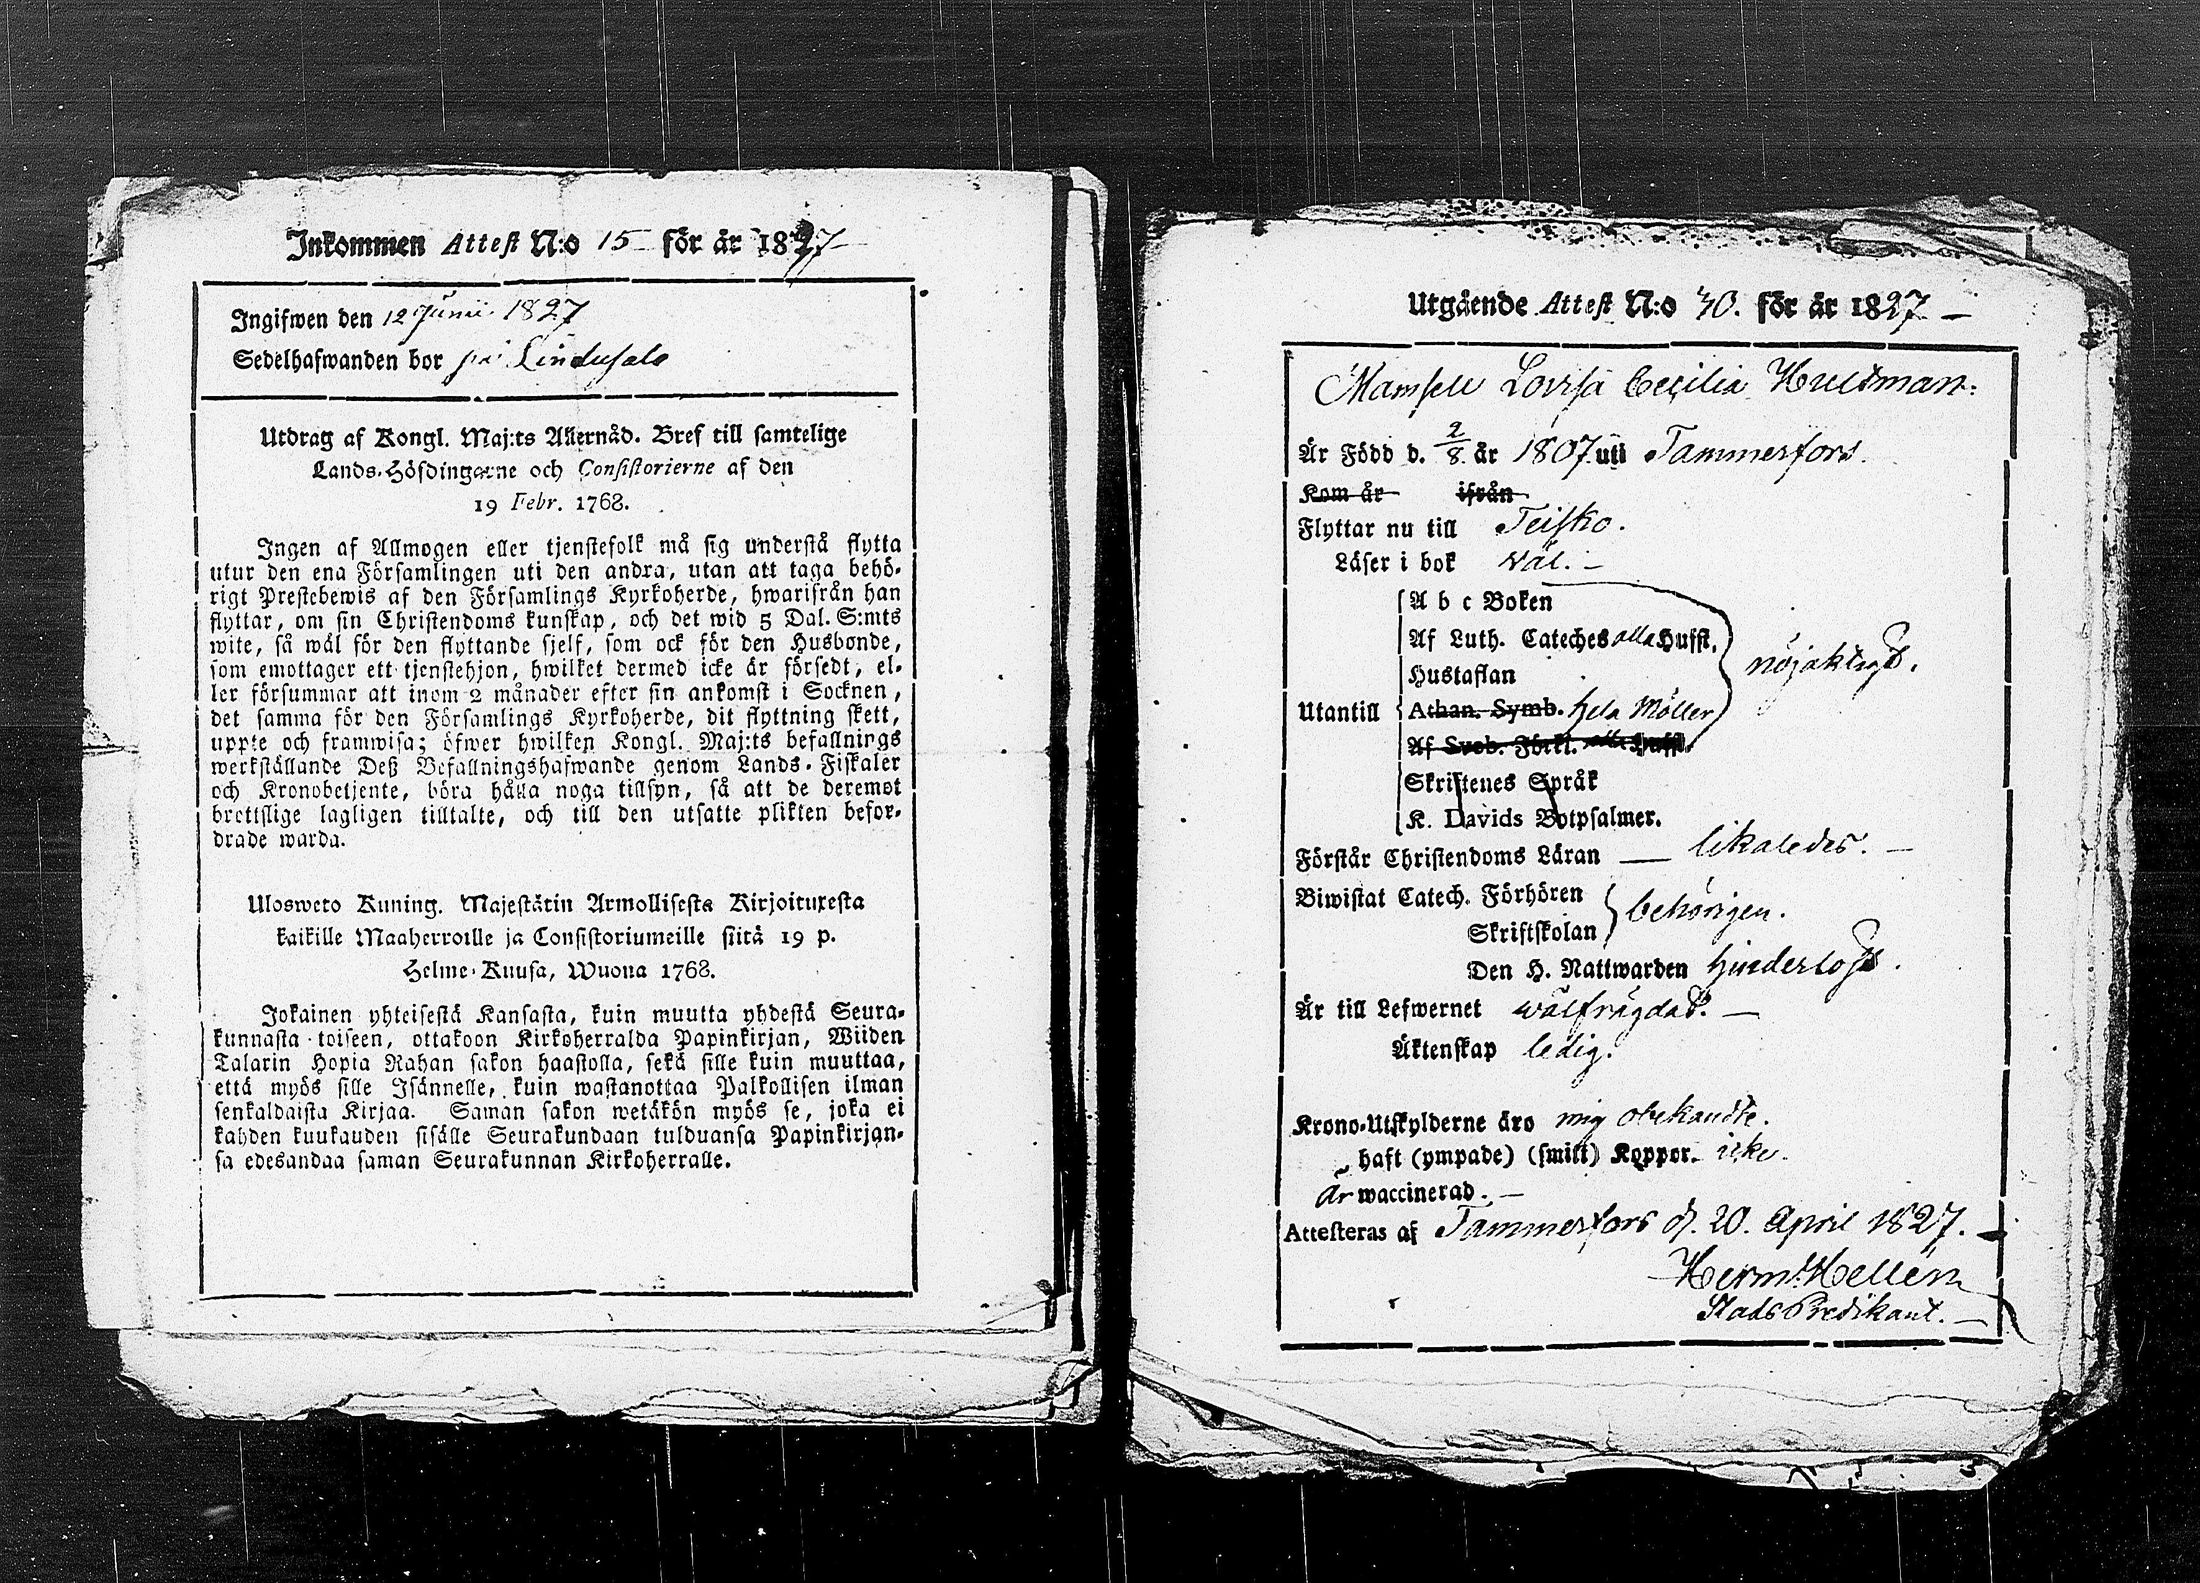 Inkommen Attest N:o 15 för år 1827
Ingifwen den 12 Junii 1827
Sedelhafwanden bor på Lindusalo
Utdrag af Kongl. Maj:ts Allernåd. Bref till samtelige
Lands-Höfdingarne och Consistorierne af den
19 Febr. 1768.
Ingen af Allmogen eller tjenstefolk må sig understå flytta
utur den ena Församlingen uti den andra, utan att taga behö-
rigt Prestebewis af den Församlings Kyrkoherde, hwarifrån han
flyttar, om sin Christendoms kunskap, och det wid 5 Dal. S:mts
wite, så wäl för den flyttande sjelf, som ock för den Husbonde,
som emottager ett tjenstehjon, hwilket dermed icke är försedt, el-
ler försummar att inom 2 månader efter sin ankomst i Socknen,
det samma för den Församlings Kyrkoherde, dit flyttning skett,
uppte och framwisa; öfwer hwilken Kongl. Maj:ts befallnings
werkställande Deß Befallningshafwande genom Lands-Fiskaler
och Kronobetjente, böra hålla noga tillsyn, så att de deremot
brottslige lagligen tilltalte, och till den utsatte plikten befor-
drade warda.
Ulosweto Kuning. Majestätin Armollisesta Kirjoituxesta
kaikille Maaherroille ja Consistoriumeille siitä 19 p.
Helme-Kuusa, Wuona 1768.
Jokainen yhteisestä Kansasta, kuin muutta yhdestä Seura-
kunnasta toiseen, ottakoon Kirkoherralda Papinkirjan, Wiiden
Talarin Hopia Rahan sakon haastolla, sekä sille kuin muuttaa,
että myös sille Isännelle, kuin wastanottaa Palkollisen ilman
senkaldaista Kirjaa. Saman sakon wetäkön myös se, joka ei
kahden kuukauden sisälle Seurakundaan tulduansa Papinkirjan-
sa edesandaa saman Seurakunnan Kirkoherralle.
Utgående Attest N:o 40. för år 1827
Mamsell Lovisa Cecilia Hultman.
Är Född d. 2/8 år 1807 uti Tammerfors.
Kom år ifrån
Flyttar nu till Teisko.
Läser i bok väl.
A b c Boken
Af Luth. Cateches alla Hufst.
Hustaflan nöjaktigt.
Utantill Athan. Symb. hela Möller
Af Sveb. Förkl. alla Hufst.
Skriftenes Språk
K. Davids Botpsalmer.
Förstår Christendoms Läran likaledes.
Biwistat Catech. Förhören
Skriftskolan behörigen.
Den H. Nattwarden hinderlöst.
Är till Lefwernet wälfrägdat.
Äktenskap ledig.
Krono-Utskylderne äro mig obekandte.
haft (ympade) (smitt) Koppor. icke.
Är waccinerad.
Attesteras af Tammerfors d. 20. April 1827.
Herm. Hellén
StadsPredikant.